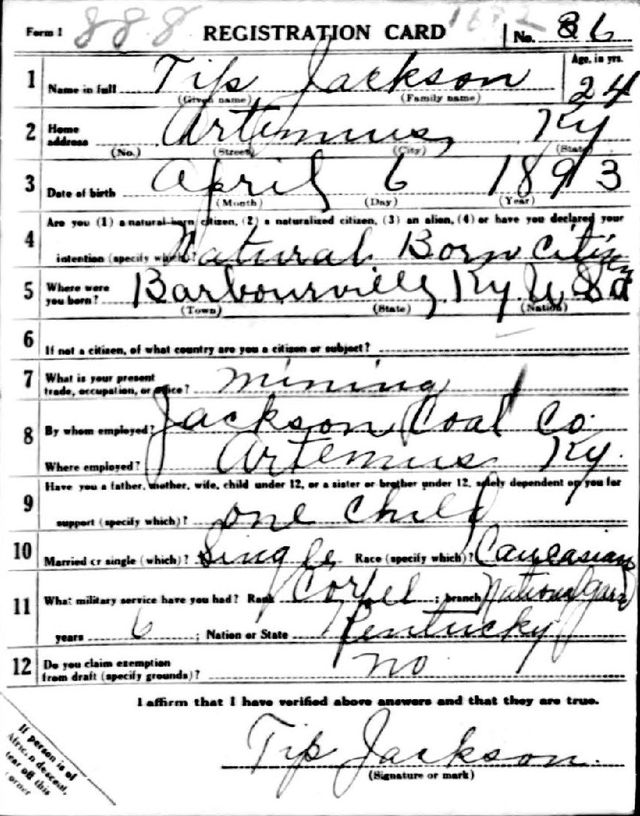 Form 1 888 REGISTRATION CARD No. 86
1 Name in full Tip Jackson Age, in yrs. 24
(Given name) (Family name)
2 Home address Artemus, Ky
(No.) (Street) (City) (State)
3 Date of birth April 6 1893
(Month) (Day) (Year)
4 Are you (1) a natural-born citizen, (2) a naturalized citizen, (3) an alien, (4) or have you declared your
intention (specify which)? Natural Born Citizen
5 Where were you born? Barbourville, Ky. U S A
(Town) (State) (Nation)
6 If not a citizen, of what country are you a citizen or subject?
7 What is your present trade, occupation, or office? mining
8 By whom employed? Jackson Coal Co.
Where employed? Artemus Ky.
9 Have you a father, mother, wife, child under 12, or a sister or brother under 12, solely dependent on you for
support (specify which)? one child
10 Married or single (which)? Single Race (specify which)? Caucasian
11 What military service have you had? Rank ; branch National Guard
years 6 ; Nation or State Kentucky
12 Do you claim exemption from draft (specify grounds)? no
I affirm that I have verified above answers and that they are true.
Tip Jackson.
(Signature or mark)
If person is of
African descent,
tear off this
corner